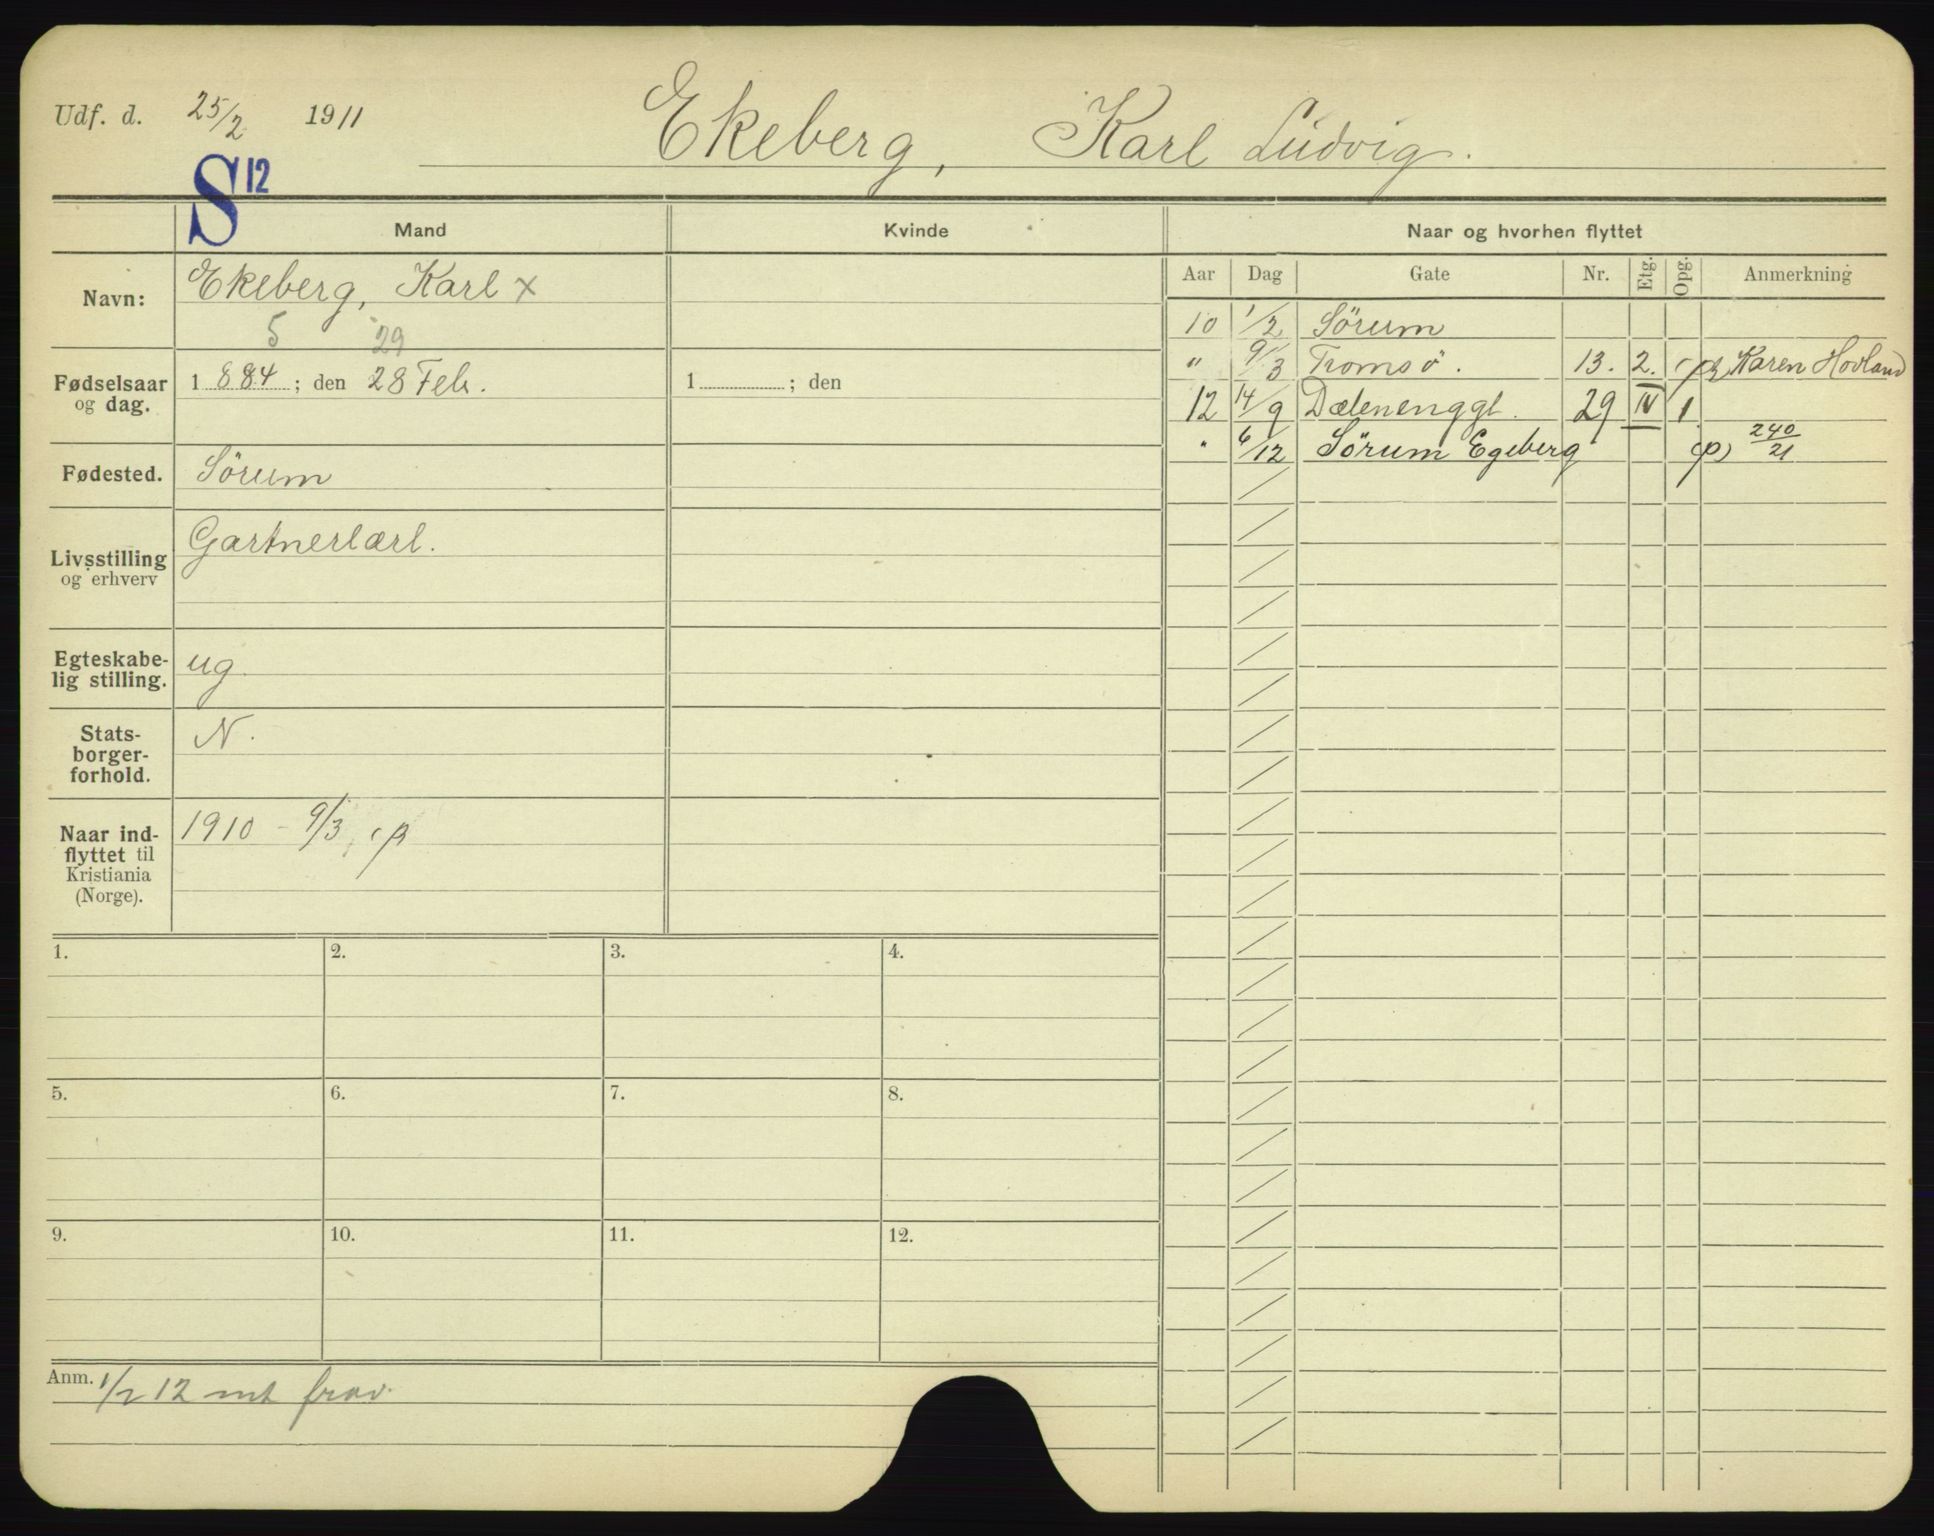 Udf. d. 25/2 1911 Ekeberg, Karl Ludvig.
S 12
Mand Kvinde Naar og hvorhen flyttet
Navn: Ekeberg, Karl x
5 29
Fødselsaar og dag. 1 884 ; den 28 Feb. 1 ; den
Fødested. Sörum
Livsstilling og erhverv Gartnerlærl.
Egteskabe-
lig stilling. ug.
Stats-
borger-
forhold. N.
Naar ind-
flyttet til
Kristiania
(Norge). 1910 - 9/3 (p
Aar Dag Gate Nr. Etg. Opg. Anmerkning
10 1/2 Sörum
" 9/3 Tromsö. 13. 2. Karen Hovland
12 14/9 Dælenenggt. 29 IV 1
" 6/12 Sörum Egeberg (p) 240/21
1. 2. 3. 4.
5. 6. 7. 8.
9. 10. 11. 12.
Anm. 1/2 12 mt frav.